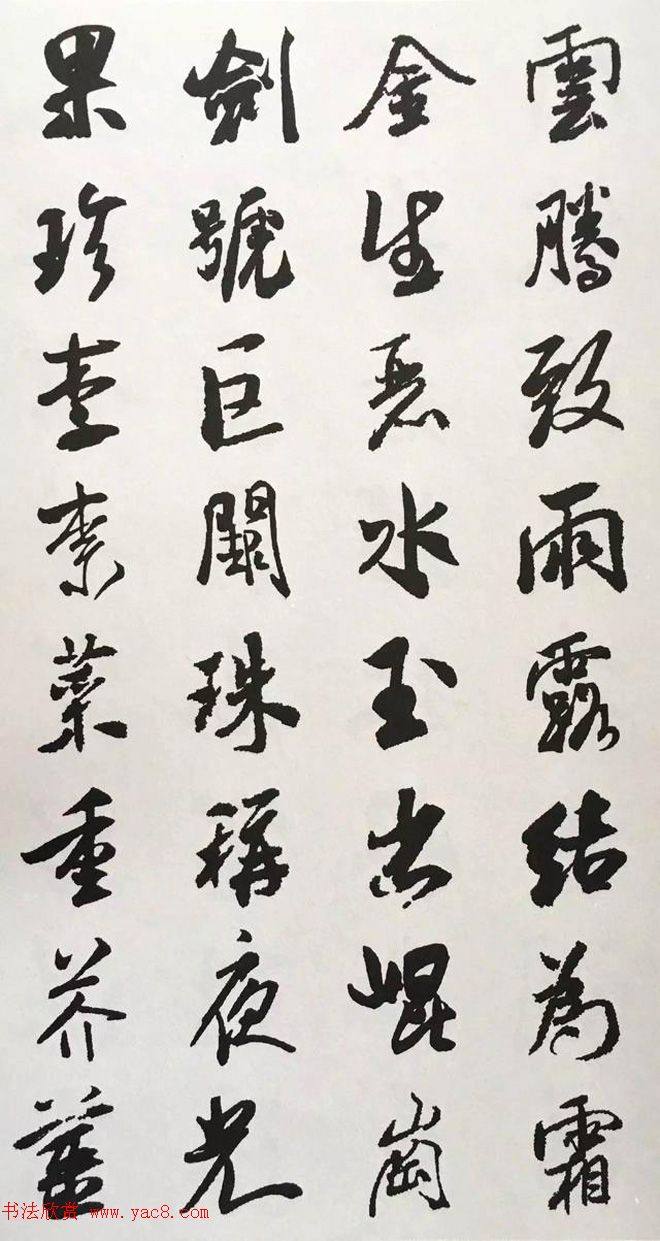 雲騰致雨露結為霜
金生麗水玉出崐崗
劍號巨闕珠稱夜光
果珍李柰菜重芥薑
书法欣赏 www.yac8.com